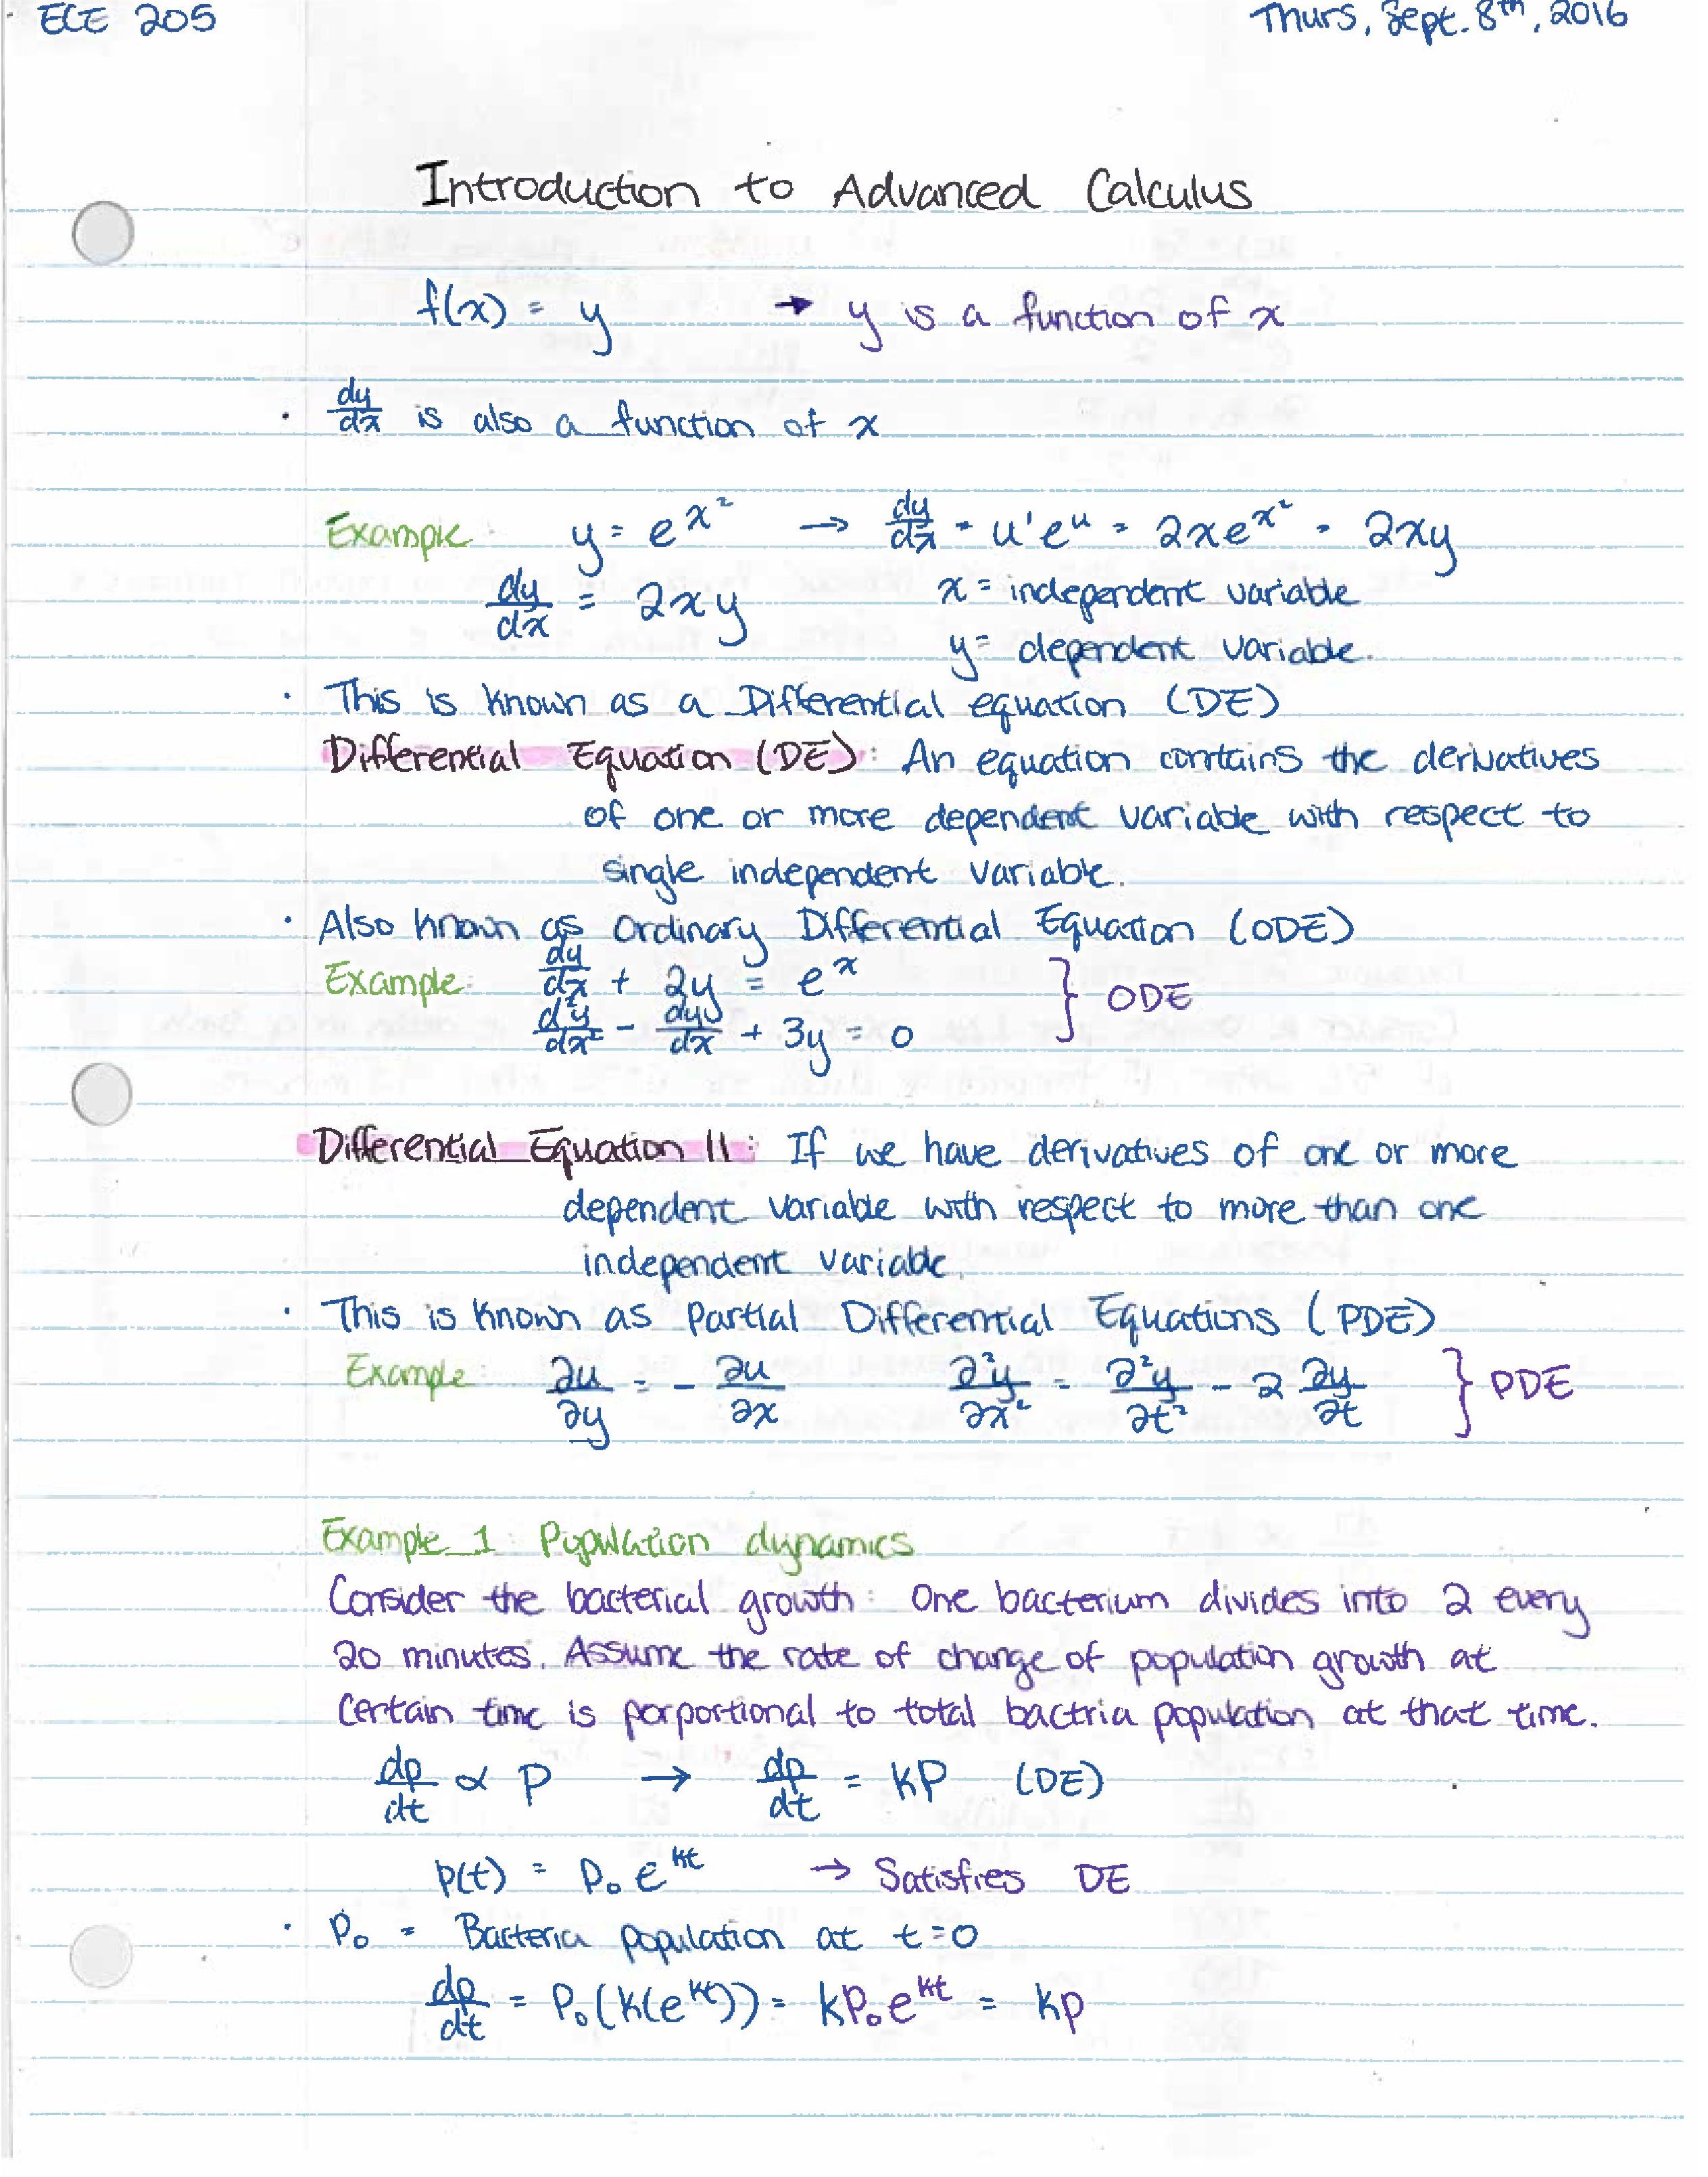 ECE 205 Thurs, Sept. 8th, 2016
Introduction to Advanced Calculus
f(x) = y → y is a function of x
· dy/dx is also a function of x
Example: y = e^x² → dy/dx = u'e^u = 2xe^x² = 2xy
dy/dx = 2xy x = independent variable
y = dependent variable.
· This is known as a Differential equation (DE)
Differential Equation (DE): An equation contains the derivatives
of one or more dependent variable with respect to
single independent variable.
· Also known as Ordinary Differential Equation (ODE)
Example: dy/dx + 2y = e^x } ODE
d²y/dx² - dy/dx + 3y = 0
Differential Equation II: If we have derivatives of one or more
dependent variable with respect to more than one
independent variable.
· This is known as Partial Differential Equations (PDE)
Example: ∂u/∂y = - ∂u/∂x ∂²y/∂x² = ∂²y/∂t² - 2 ∂y/∂t } PDE
Example 1: Population dynamics
Consider the bacterial growth: One bacterium divides into 2 every
20 minutes. Assume the rate of change of population growth at
certain time is porportional to total bactria population at that time.
dp/dt ∝ P → dp/dt = kP (DE)
p(t) = P₀ e^kt → Satisfies DE
· P₀ = Bacteria population at t=0
dp/dt = P₀(k(e^kt)) = kP₀e^kt = kp